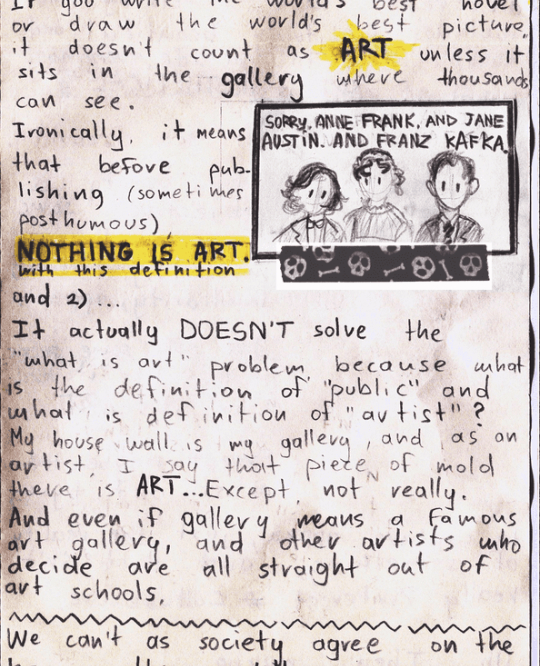 If you write the world's best novel
or draw the world's best picture,
it doesn't count as ART unless it
sits in the gallery where thousands
can see.
Ironically, it means
that before pub-
lishing (sometimes
posthumous)
NOTHING IS ART.
with this definition
SORRY, ANNE FRANK, AND JANE
AUSTIN. AND FRANZ KAFKA.
and 2)...
It actually DOESN'T solve the
"what is art" problem because what
is the definition of "public" and
what is definition of "artist"?
My house wall is my gallery, and as an
artist, I say that piece of mold
there is ART...Except, not really.
And even if gallery means a famous
art gallery, and other artists who
decide are all straight out of
art schools.
We can't as society agree on the